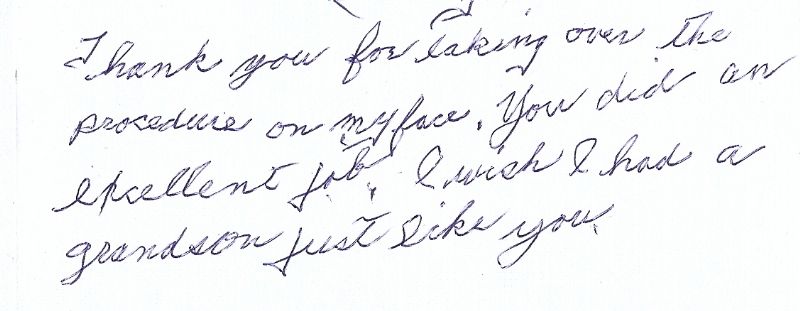 Thank you for taking over the
procedure on my face. You did an
excellent job. I wish I had a
grandson just like you.